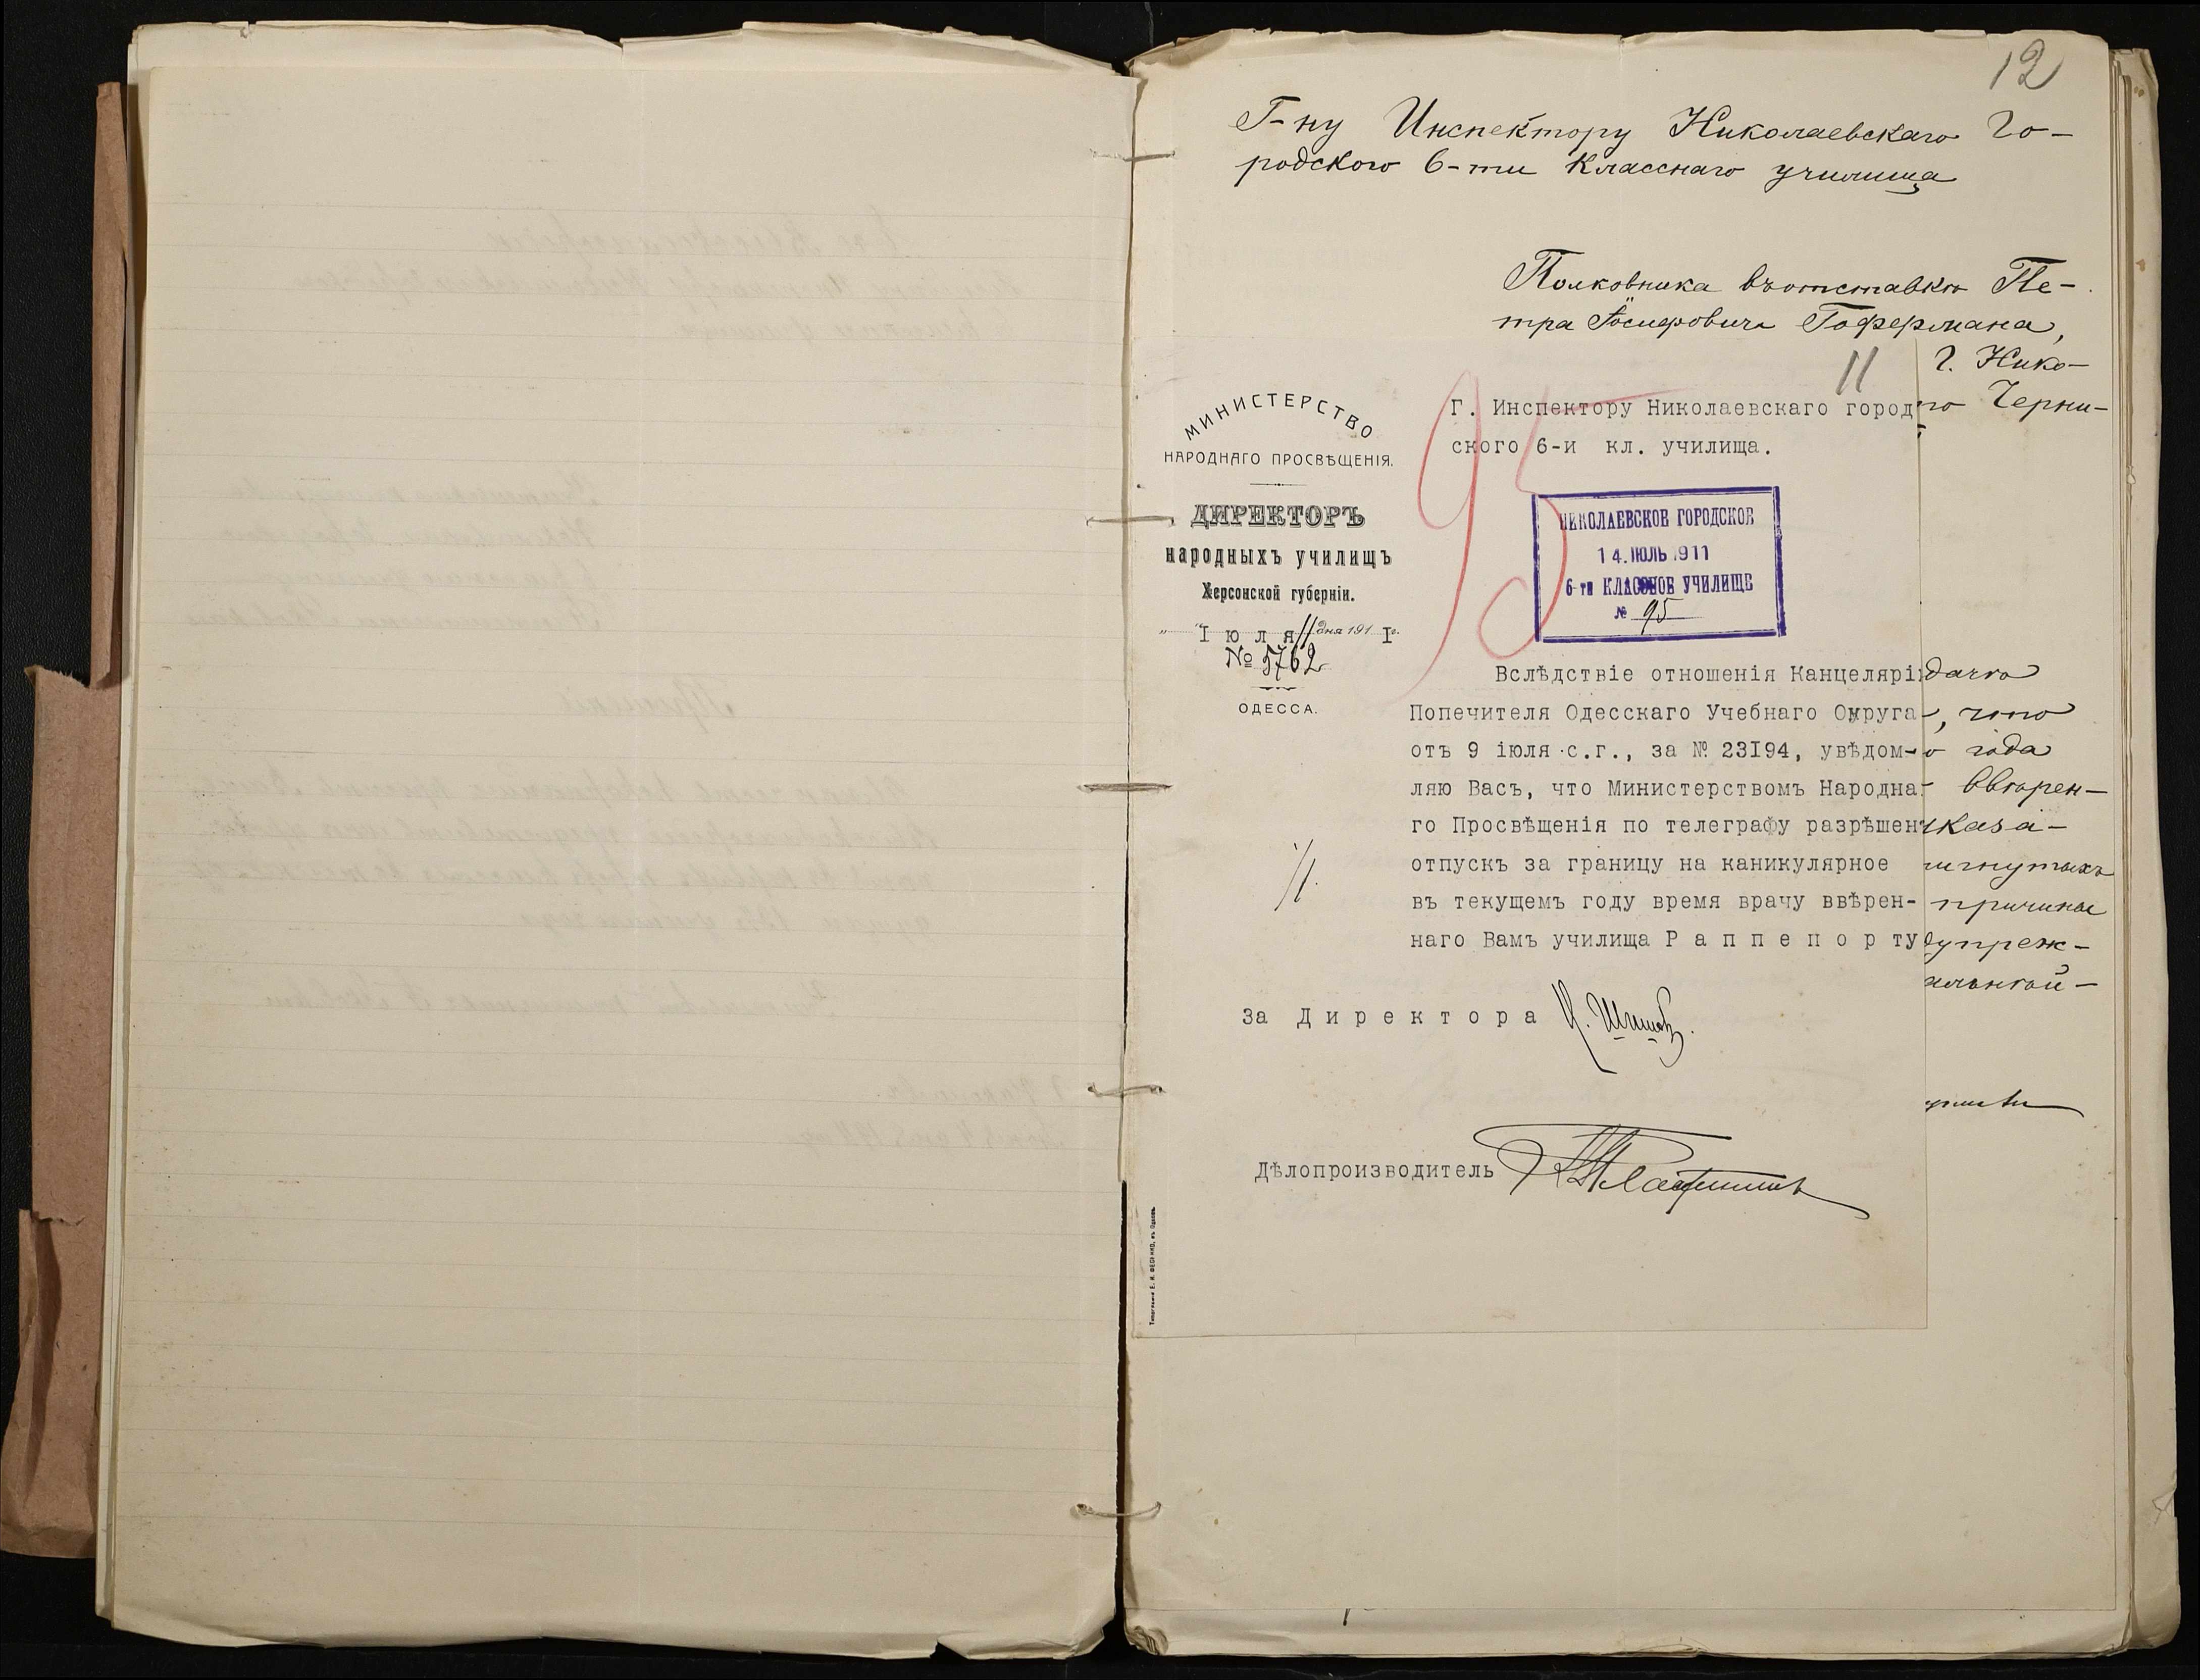 12
Г-ну Инспектору Николаевскаго Го-
родского 6-ти Класснаго училища
Полковника въ отставкѣ Пе-
тра Гофермана,
г. Нико-
Черни-
11
МИНИСТЕРСТВО
НАРОДНАГО ПРОСВѢЩЕНІЯ.
ДИРЕКТОРЪ
народныхъ училищъ
Херсонской губерніи.
"Іюля 11 дня 191 Iг.
№ 5762
ОДЕССА.
Г. Инспектору Николаевскаго город
ского 6-и кл. училища.
95
НИКОЛАЕВСКОЕ ГОРОДСКОЕ
14.ІЮЛЬ 1911
6-ти КЛАССНОЕ УЧИЛИЩЕ
№ 95
Вслѣдствіе отношенія Канцеляріи
Попечителя Одесскаго Учебнаго Округа
отъ 9 іюля с.г., за № 23I94, увѣдом-
ляю Васъ, что Министерствомъ Народна
го Просвѣщенія по телеграфу разрѣшенъ
отпускъ за границу на каникулярное
въ текущемъ году время врачу ввѣрен-
наго Вамъ училища Р а п п е п о р ту
, что
года
ввѣрен-
каза-
причины
упреж-
За Д и р е к т о р а
Дѣлопроизводитель